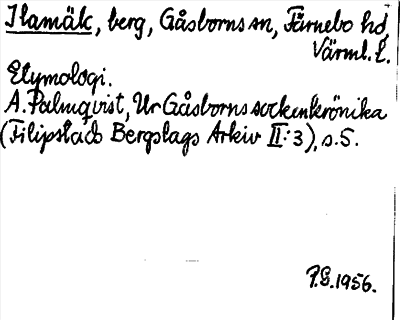 Ilamäk, berg, Gåsborns sn, Färnebo hd,
Värml. l.
Etymologi.
A. Palmqvist, Ur Gåsborns sockenkrönika
(Filipstads Bergslags Arkiv II:3), s. 5.
P.G. 1956.